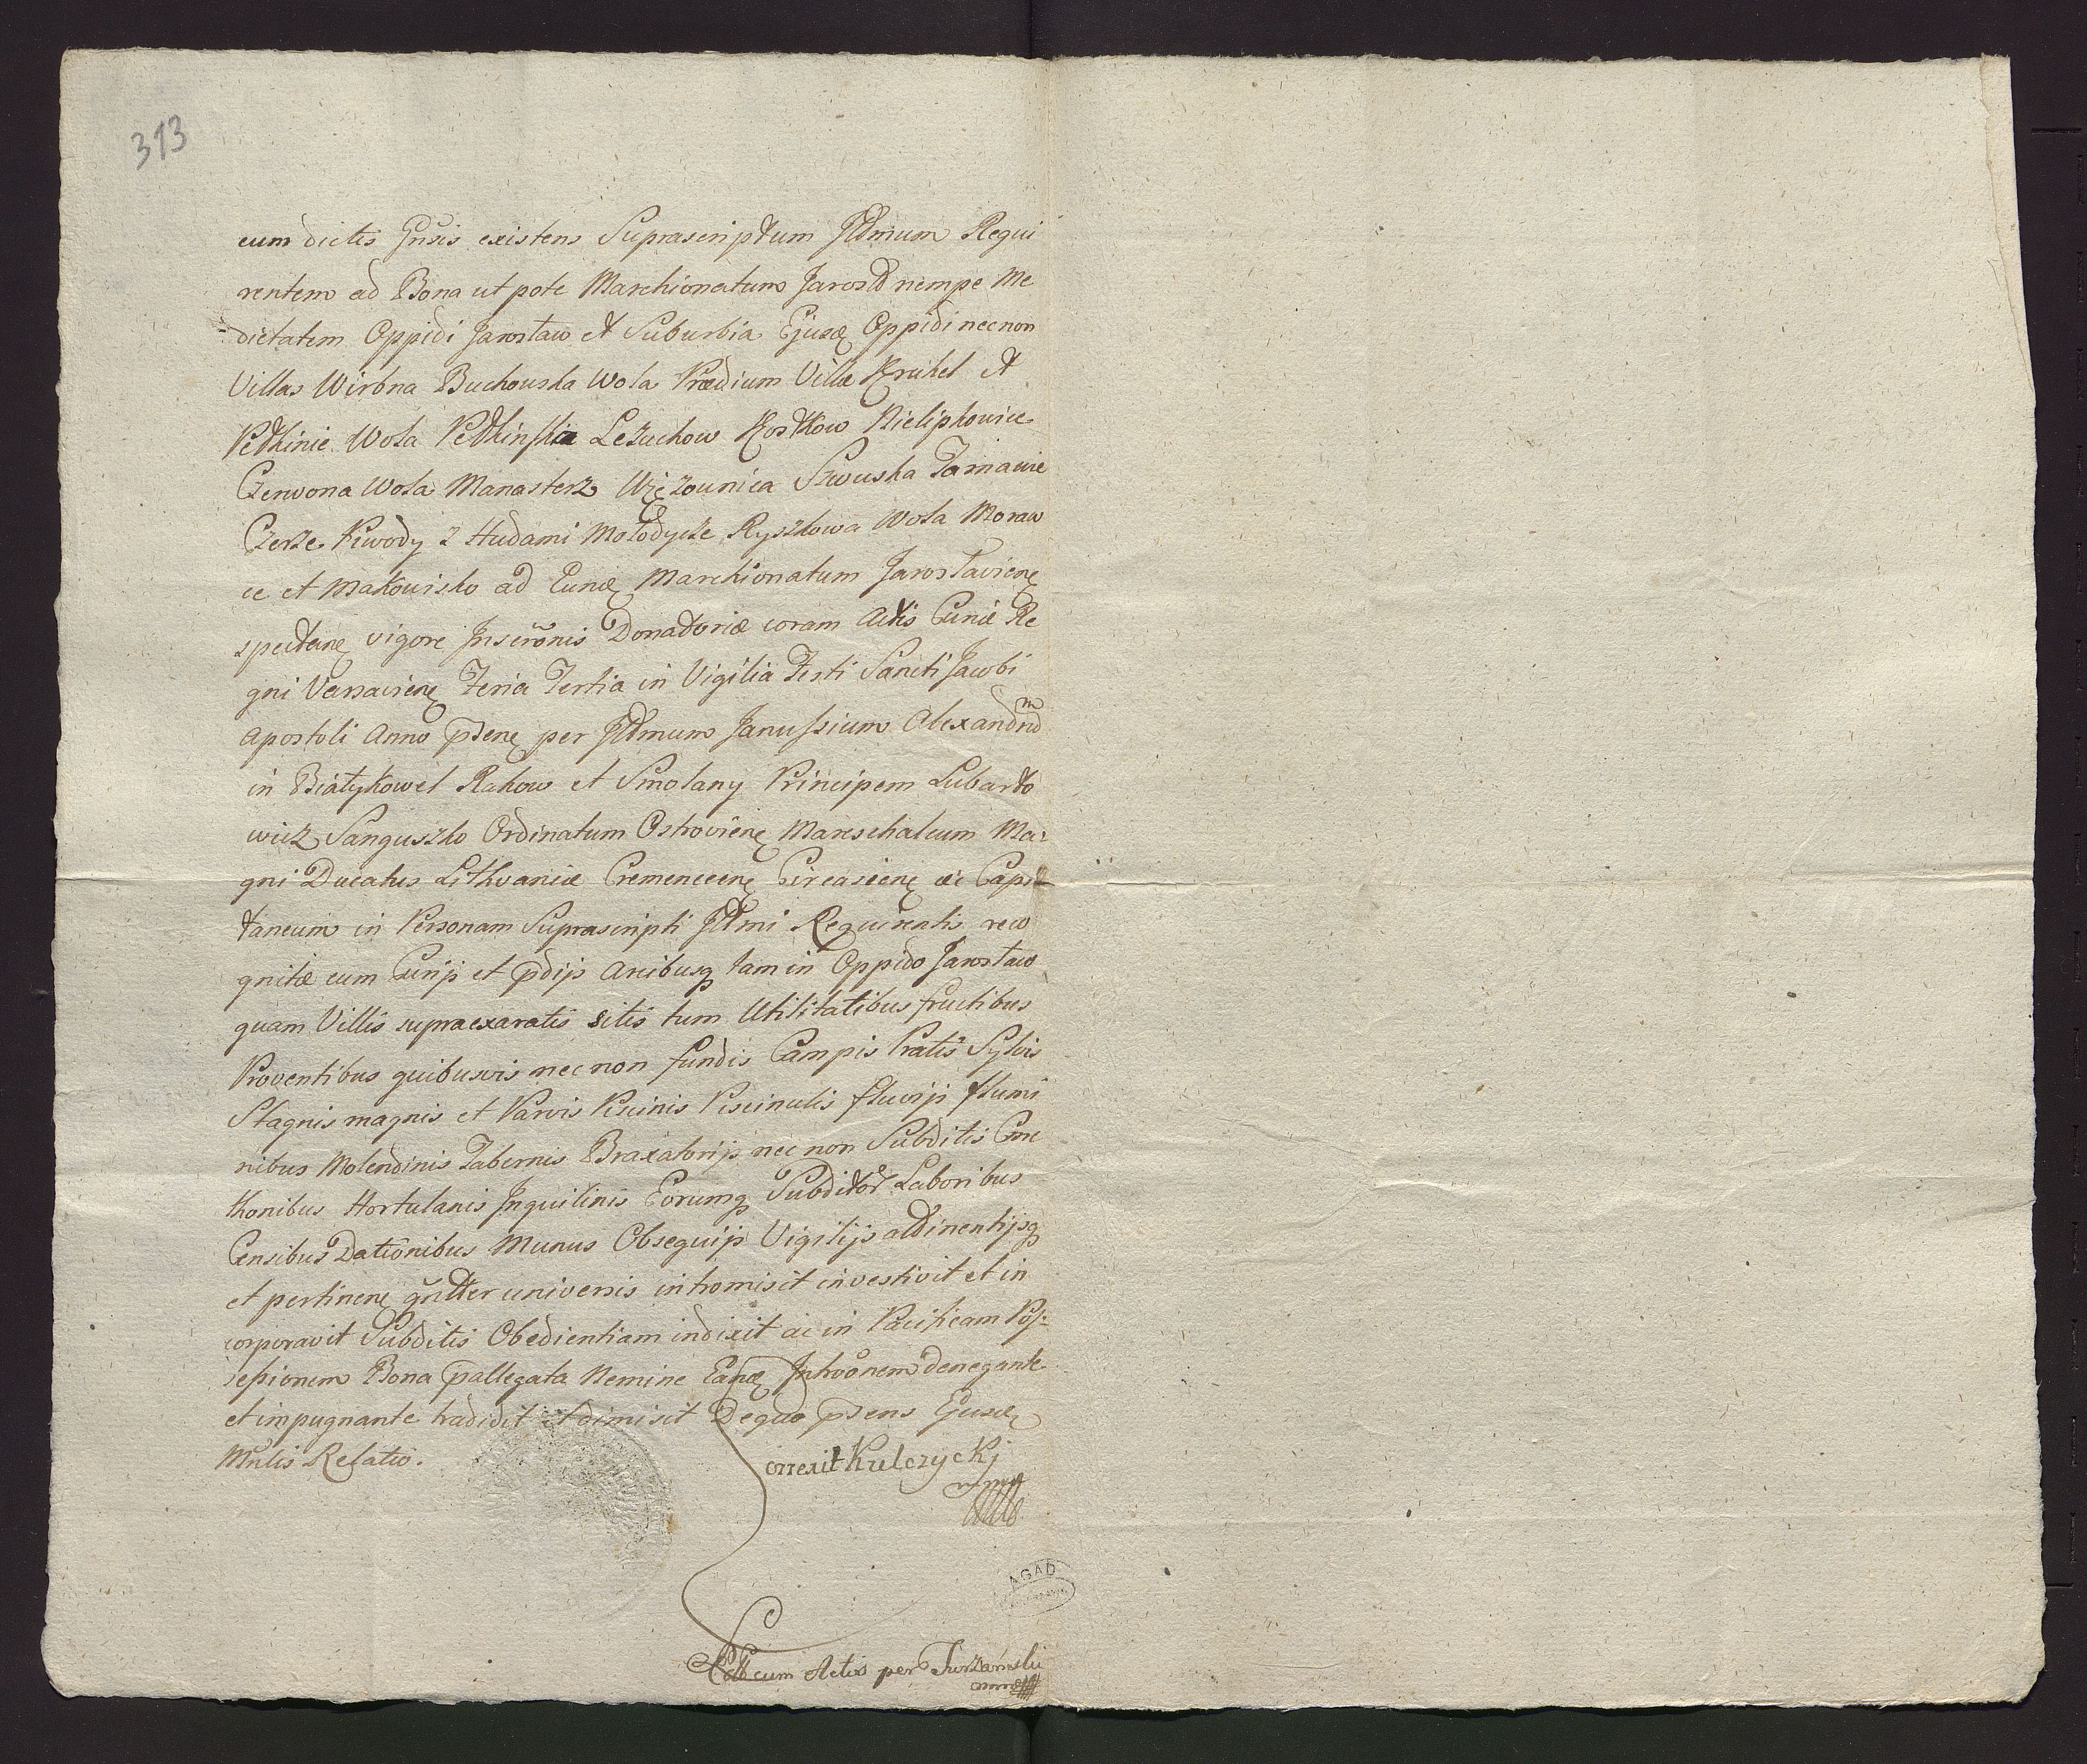 313
cum dictis Gnsis existens Suprascriptum Illmum Requi
rentem ad Bona ut pote Marchionatum Jarosł nempe Me
dietatem Oppidi Jarosław et Suburbia Ejusd Oppidi necnon
Villas Wirbna Buchouska Wola Prædium Villæ Kruhel et
Pełkinie Wola Pełkinska Leżachow Kostkow Nielipkowice
Czerwona Wola Manasterz Wiązounica Szwuska Tarnawie
Czerze Piwody z Hudami Mołodycze Ryszkowa Wola Moraw
ce et Makowisko ad Eund Marchionatum Jarosłavien
spectan vigore Inscrōnis Donatoriæ coram Actis Curiæ Re
gni Varsavien Feria Tertia in Vigilia Festi Sancti Jacobi
Apostoli Anno pn̄ten per Illmum Janussium Alexandrum
in Białykowel Rakow et Smolany Principem Lubarto
wicz Sanguszko Ordinatum Ostrovien Mareschalcum Ma:
gni Ducatus Lithvaniæ Cremenecen Circasien &c Capi
taneum in Personam Suprascripti Illmi Requirentis reco
gnitæ cum Curijs et pdijs Arcibusq tam in Oppido Jarosław
quam Villis supraexaratis sitis tum Utilitatibus fructibus
Proventibus quibusvis nec non fundis Campis Pratis Sylvis
Stagnis magnis et Parvis Piscinis Piscinulis fluvijs flumi
nibus Molendinis Tabernis Braxatorijs nec non Subditis Cme
thonibus Hortulanis Inquilinis Eorumq Subditor Laboribus
Censibus Dationibus Munus Obsequijs Vigilijs attinentijsq
et pertinen gn̄lter universis intromisit investivit et in
corporavit Subditis Obedientiam indixit ac in Pacificam Pos:
sessionem Bona pallegata Nemine Eand Introōnem denegante
et impugnante tradidit et dimisit De quo pn̄tens Ejusd
Mn̄lis Relatio.
Correxit Kulczyckj
mpp
AGAD
Lect cum Actis per Turzanski
mpp